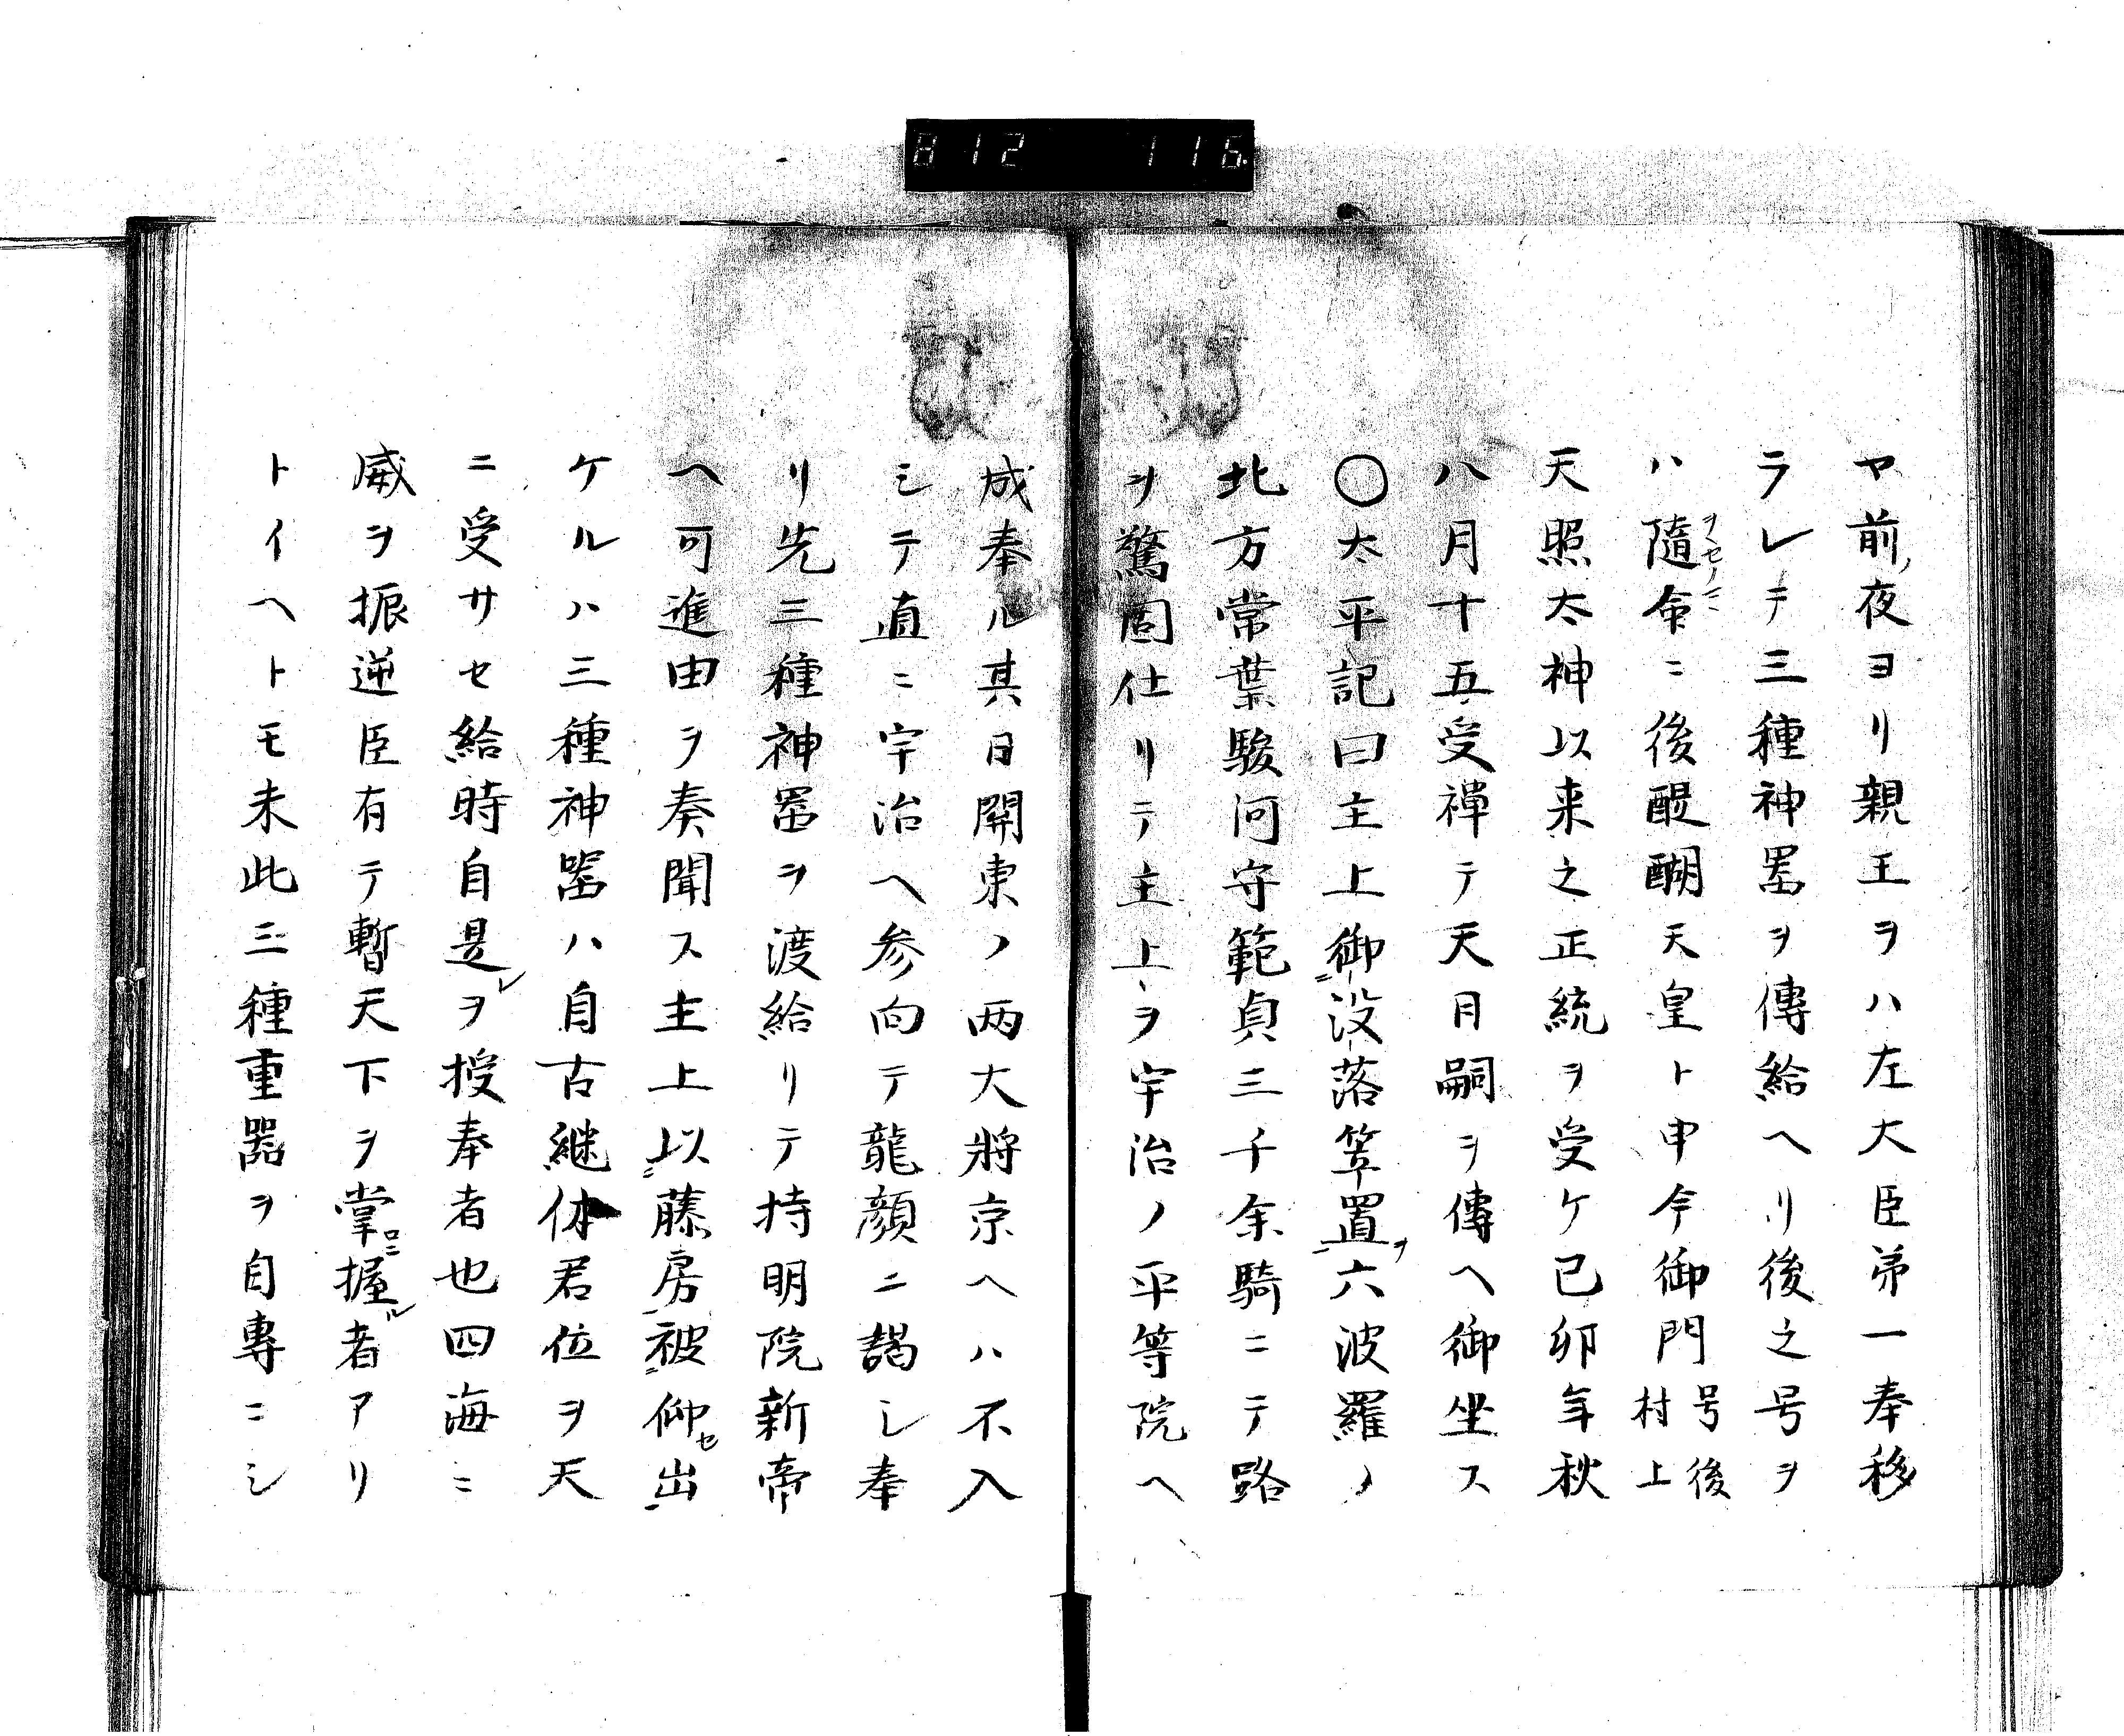 812 116
ヤ前ノ夜ヨリ親王ヲハ左大臣弟一奉移
ラレテ三種神器ヲ傳給ヘリ後之号ヲ
ハ隨命ニ後醍醐天皇ト申今御門号後村上
ヲセノニ
天照太神以来之正統ヲ受ケ己卯年秋
八月十五受禅テ天日嗣ヲ傳ヘ御坐ス
〇太平記曰主上御没落笠置ヲ六波羅ノ
北方常葉駿河守範貞三千余騎ニテ路
ヲ驚固仕リテ主上ヲ宇治ノ平等院ヘ
成奉ル其日関東ノ両大将京ヘハ不入
シテ直ニ宇治ヘ参向テ龍顔ニ謁シ奉
リ先三種神器ヲ渡給リテ持明院新帝
ヘ可進由ヲ奏聞ス主上以藤房被仰セ出
ケルハ三種神器ハ自古継体君位ヲ天
ニ受サセ給時自是レヲ授奉者也四海ニ
威ヲ振逆臣有テ暫天下ヲ掌ニ握ル者アリ
トイヘトモ未此三種重器ヲ自専ニシ